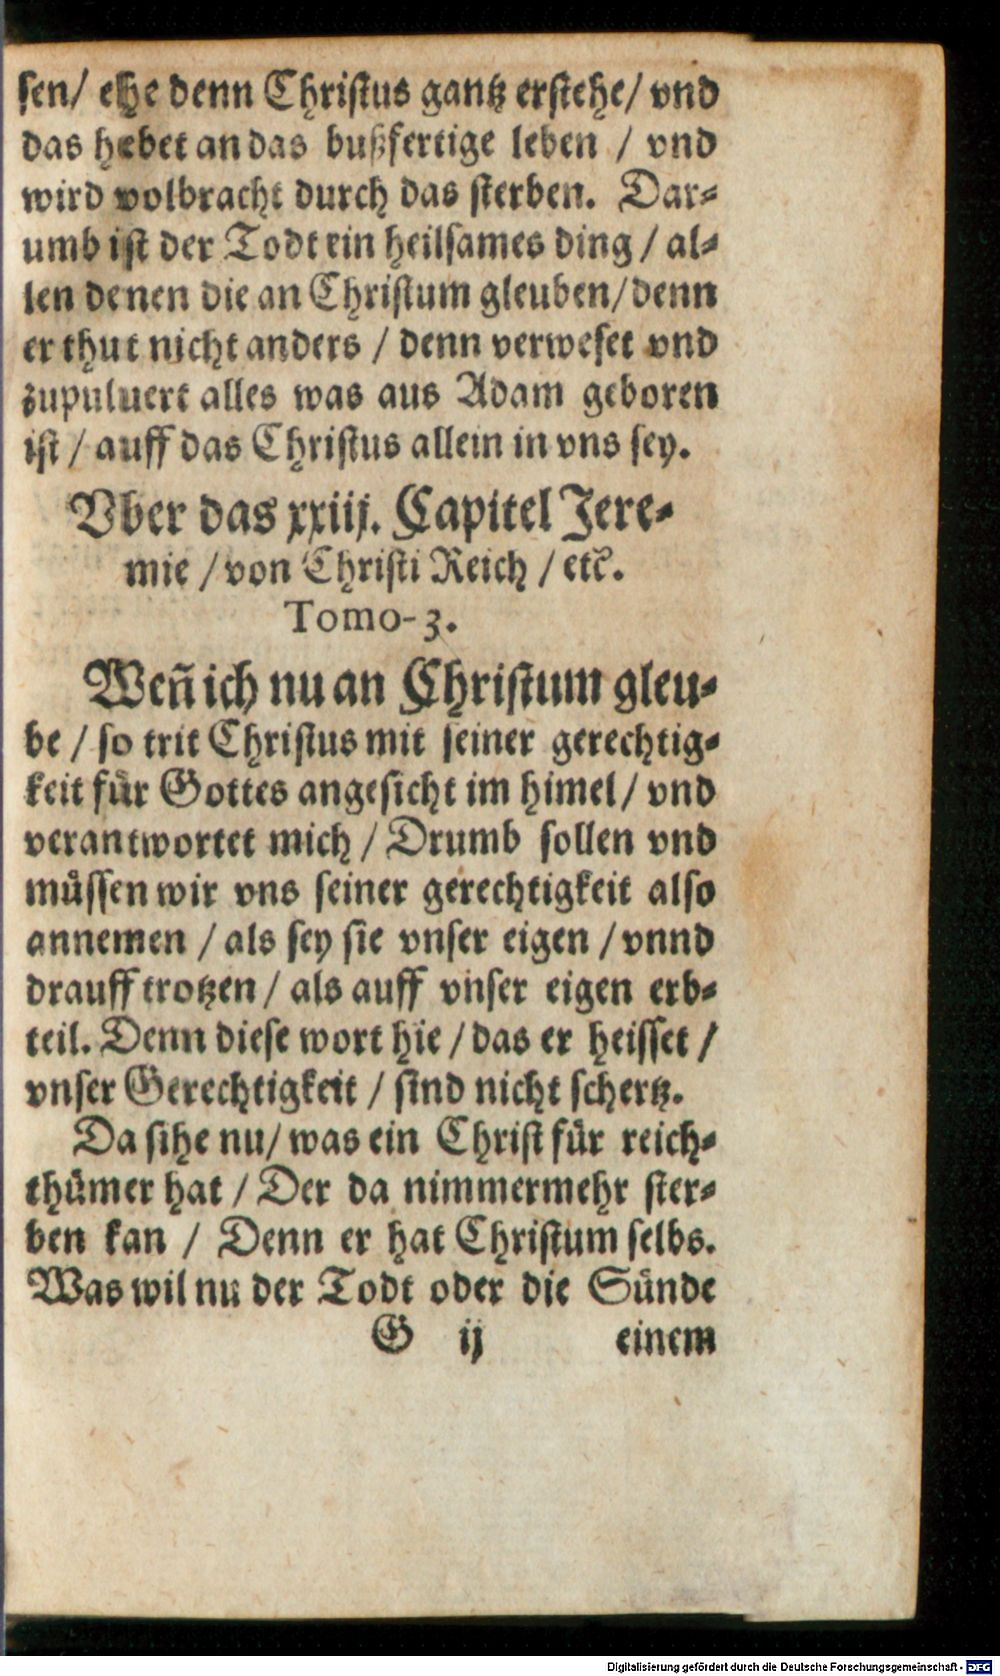 sen/ ehe denn Christus gantz erstehe/ vnd
das hebet an das bußfertige leben / vnd
wird volbracht durch das sterben. Dar-
umb ist der Todt ein heilsames ding / al-
len denen die an Christum gleuben/ denn
er thut nicht anders / denn verweset vnd
zupuluert alles was aus Adam geboren
ist / auff das Christus allein in vns sey.
Vber das xxiij. Capitel Jere-
mie / von Christi Reich / etc.
Tomo-3.
Weñ ich nu an Christum gleu-
be / so trit Christus mit seiner gerechtig-
keit für Gottes angesicht im himel/ vnd
verantwortet mich / Drumb sollen vnd
müssen wir vns seiner gerechtigkeit also
annemen / als sey sie vnser eigen / vnnd
drauff trotzen / als auff vnser eigen erb-
teil. Denn diese wort hie / das er heisset /
vnser Gerechtigkeit / sind nicht schertz.
Da sihe nu/ was ein Christ für reich-
thümer hat / Der da nimmermehr ster-
ben kan / Denn er hat Christum selbs.
Was wil nu der Todt oder die Sünde
G ij einem
Digitalisierung gefördert durch die Deutsche Forschungsgemeinschaft - DFG